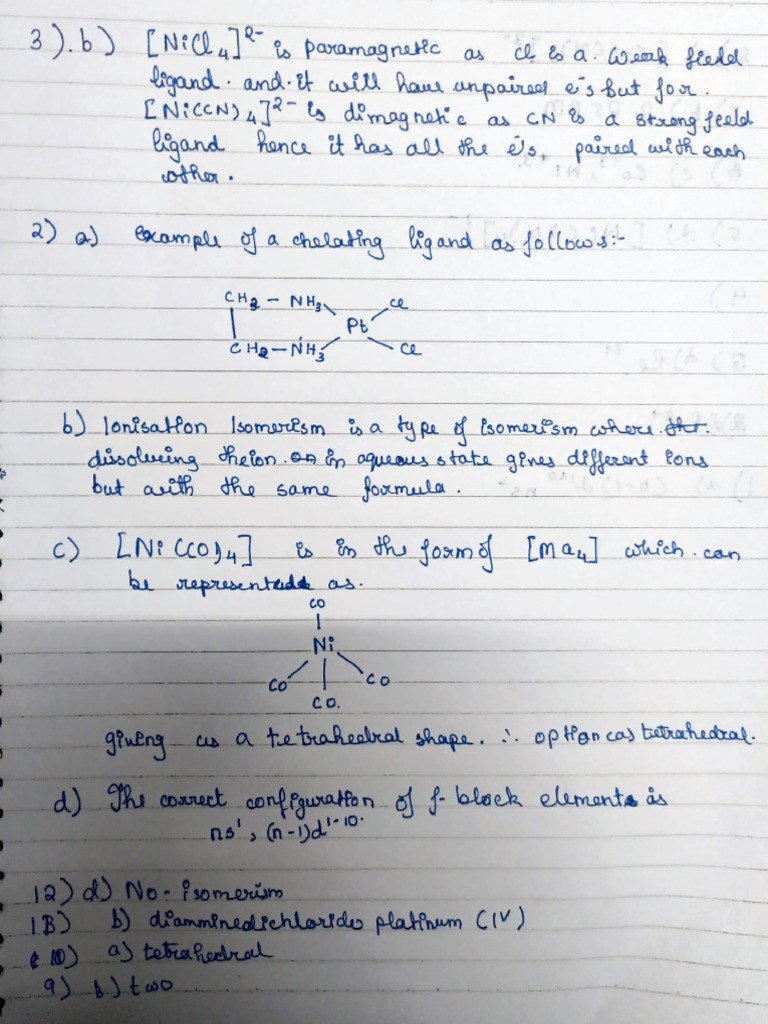 3). b) [NiCl4]2- is paramagnetic as Cl is a. weak field
ligand. and. it will have unpaired e's but for.
[Ni(CN)4]2- is dimagnetic as CN is a strong field
ligand hence it has all the e's paired with each
other.
2) a) example of a chelating ligand as follows:-
CH2 - NH3 Cl
Pt
CH2 - NH3 Cl
b) Ionisation Isomerism is a type of isomerism where
dissolveing the ion. in aqueous state gives different ions
but with the same formula.
c) [Ni(CO)4] is in the form of [Ma4] which can
be represented as.
CO
Ni
CO CO
CO.
giving us a tetraheedral shape. ∴ option c as tetrahedral.
d) The correct configuration of f-block elements is
ns1, (n-1)d1-10.
12) d) No - isomerism
b) diamminedichlorido platinum (IV)
10) a) tetrahedral
9) b) two